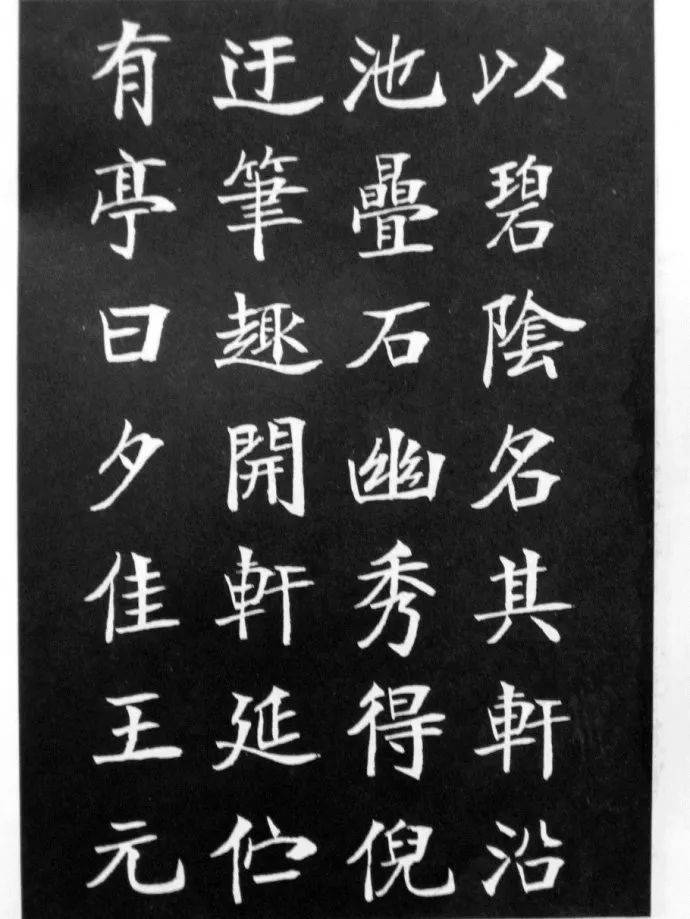 以碧陰名其軒沿
池疊石幽秀得倪
迂筆趣開軒延伫
有亭曰夕佳王元